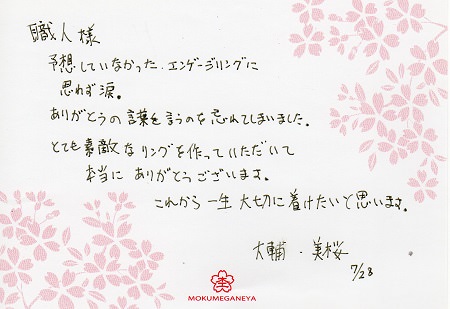 職人様
予想していなかった、エンゲージリングに
思わず涙。
ありがとうの言葉を言うのを忘れてしまいました。
とても素敵なリングを作っていただいて
本当にありがとうございます。
これから一生大切に着けたいと思います。
大輔・美桜
7/28
MOKUMEGANEYA